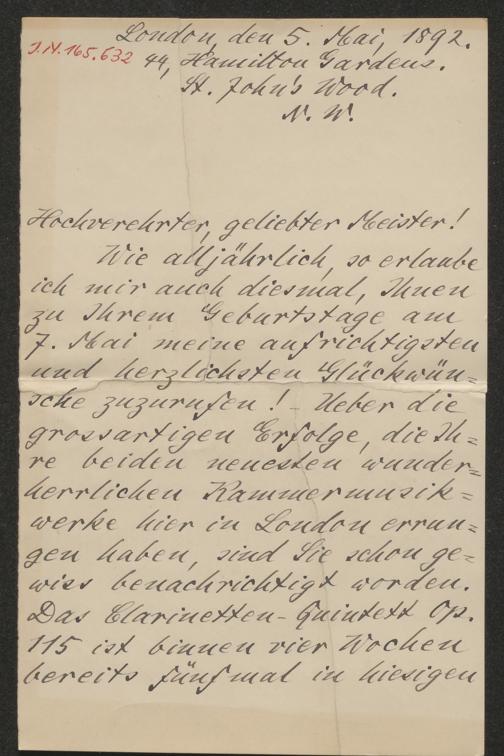 London, den 5. Mai, 1892.
J.N. 165.632
44, Hamilton Gardens.
St. John's Wood.
N. W.
Hochverehrter, geliebter Meister!
Wie alljährlich, so erlaube
ich mir auch diesmal, Ihnen
zu Ihrem Geburtstage am
7. Mai meine aufrichtigsten
und herzlichsten Glückwün=
sche zuzurufen! – Ueber die
grossartigen Erfolge, die Ih=
re beiden neuesten wunder=
herrlichen Kammermusik=
werke hier in London errun=
gen haben, sind Sie schon ge=
wiss benachrichtigt worden.
Das Clarinetten-Quintett Op.
115 ist binnen vier Wochen
bereits fünfmal in hiesigen